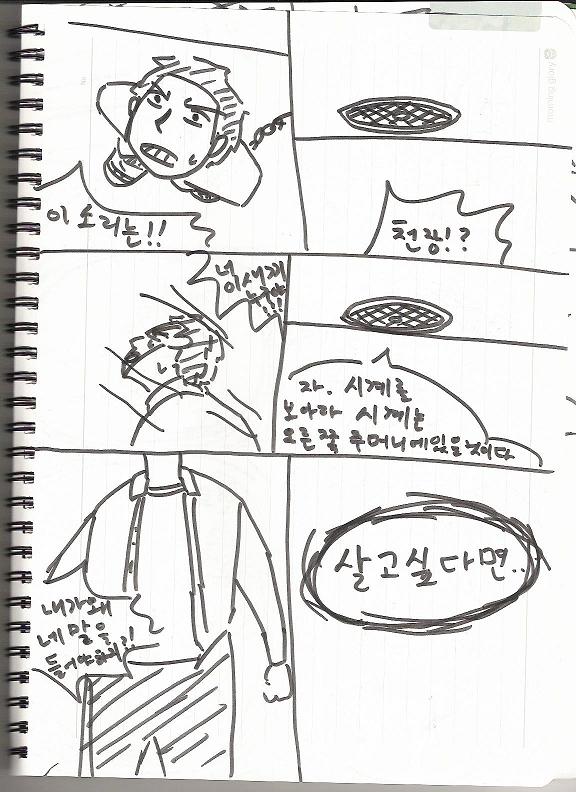 이 소리는!!
천장!?
이새끼
!!!
자. 시계를
보아라 시계는
오른쪽 주머니에있을것이다
내가왜
네 말을
들어야하지?!
살고싶다면..
morning glory